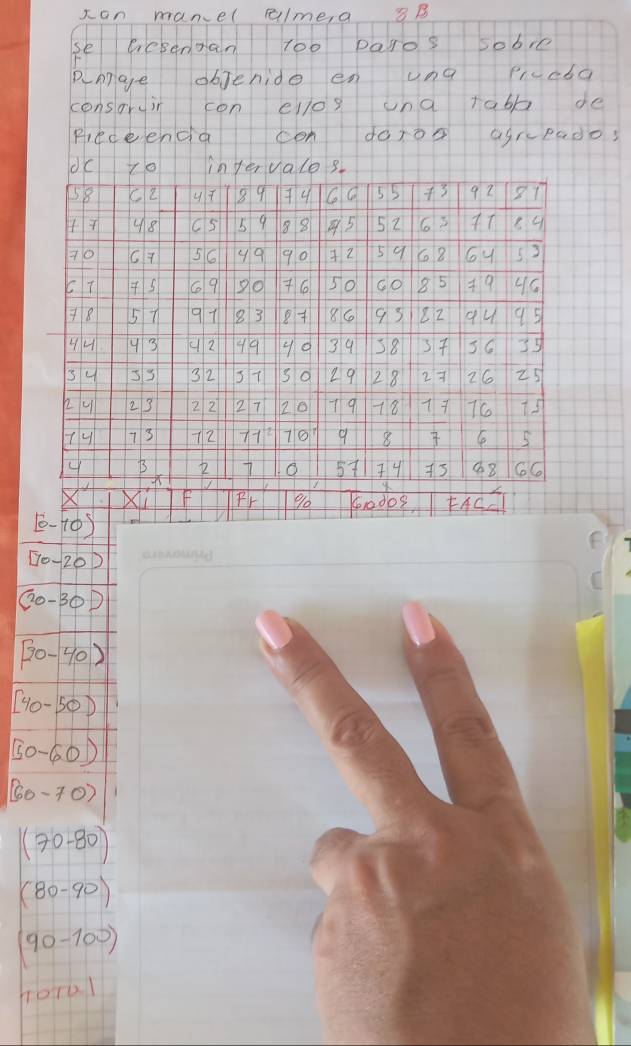 Jan manuel Palmera 8B
se Presentan 100 Datos sobre
Puntaje obtenido en una Prueba
construir con ellos una tabla de
Frecuencia con datos agrupados
de 10 intervalos.
58 62 47 89 74 66 55 73 92 81
77 48 65 59 88 45 52 63 71 84
70 67 56 49 90 72 54 68 64 53
61 75 69 80 76 50 60 85 79 46
78 51 91 83 87 86 93 82 94 95
44 43 42 49 40 39 38 37 36 35
34 33 32 31 30 29 28 27 26 25
24 23 22 21 20 19 18 17 16 15
14 13 12 11 10 9 8 7 6 5
4 3 2 1 0 57 74 73 68 66
X Xi F Fr % Grados FAC
[0-10)
[10-20)
[20-30)
[30-40)
[40-50)
[50-60)
[60-70)
(70-80)
(80-90)
(90-100)
Total
Primavera